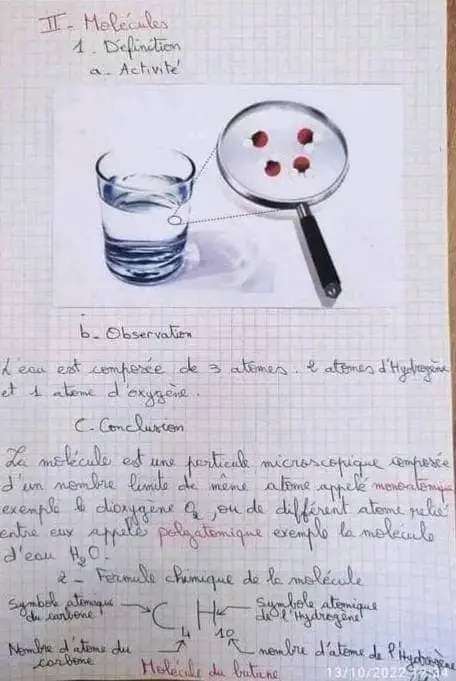 II - Molécules
1. Définition
a - Activité
b - Observation
L'eau est composée de 3 atomes. 2 atomes d'Hydrogène
et 1 atome d'oxygène.
C. Conclusion
La molécule est une particule microscopique composée
d'un nombre limité de même atome appelé monoatomique
exemple le dioxygène O2, ou de différent atome relié
entre eux appelé polyatomique exemple la molécule
d'eau H2O.
2 - Formule chimique de la molécule
Symbole atomique du carbone
C4H10
Symbole atomique de l'Hydrogène
Nombre d'atome du carbone
nombre d'atome de l'Hydrogène
Molécule du butane
13/10/2022